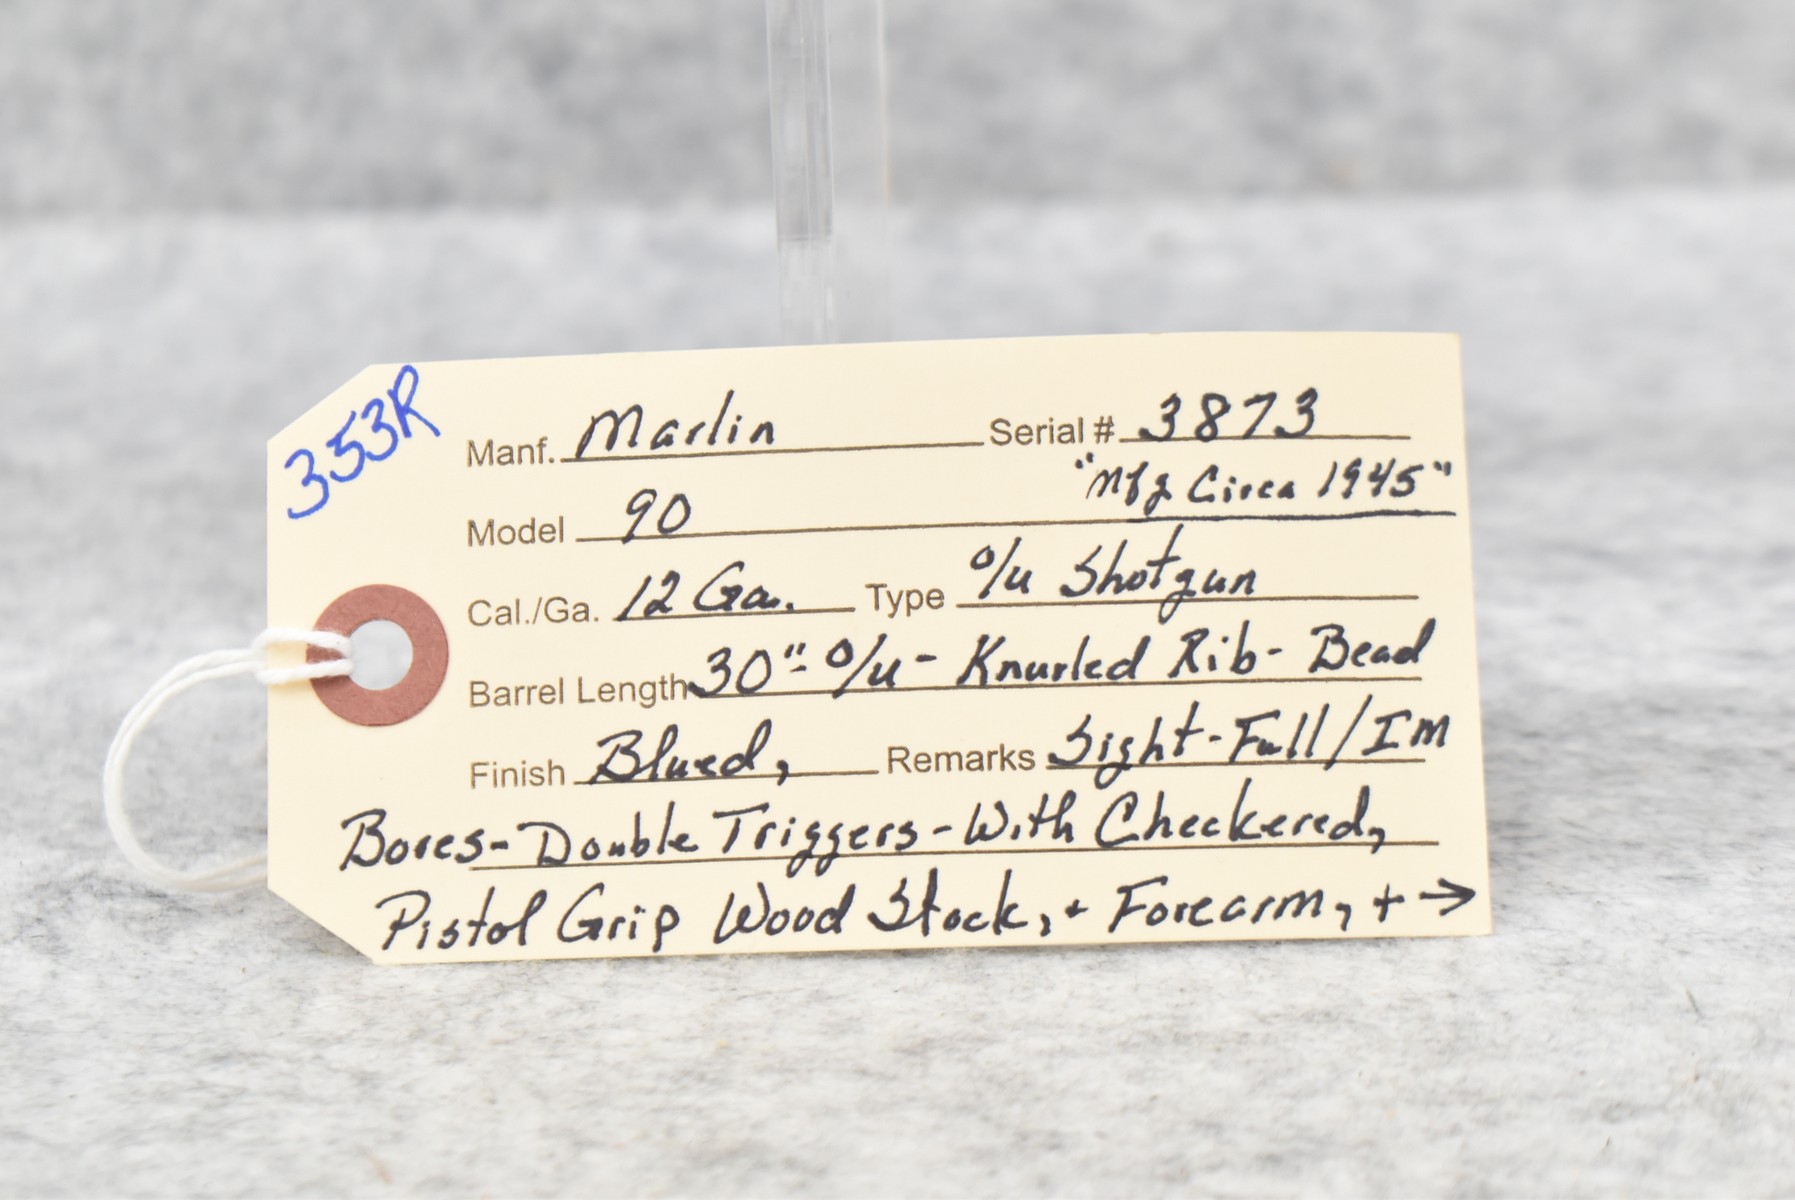 353R
Manf. Marlin Serial # 3873
"Mfg Circa 1945"
Model 90
Cal./Ga. 12 Ga. Type O/U Shotgun
Barrel Length 30"- O/U - Knurled Rib - Bead
Finish Blued, Remarks Sight - Full/IM
Bores - Double Triggers - With Checkered,
Pistol Grip Wood Stock, + Forearm, + →